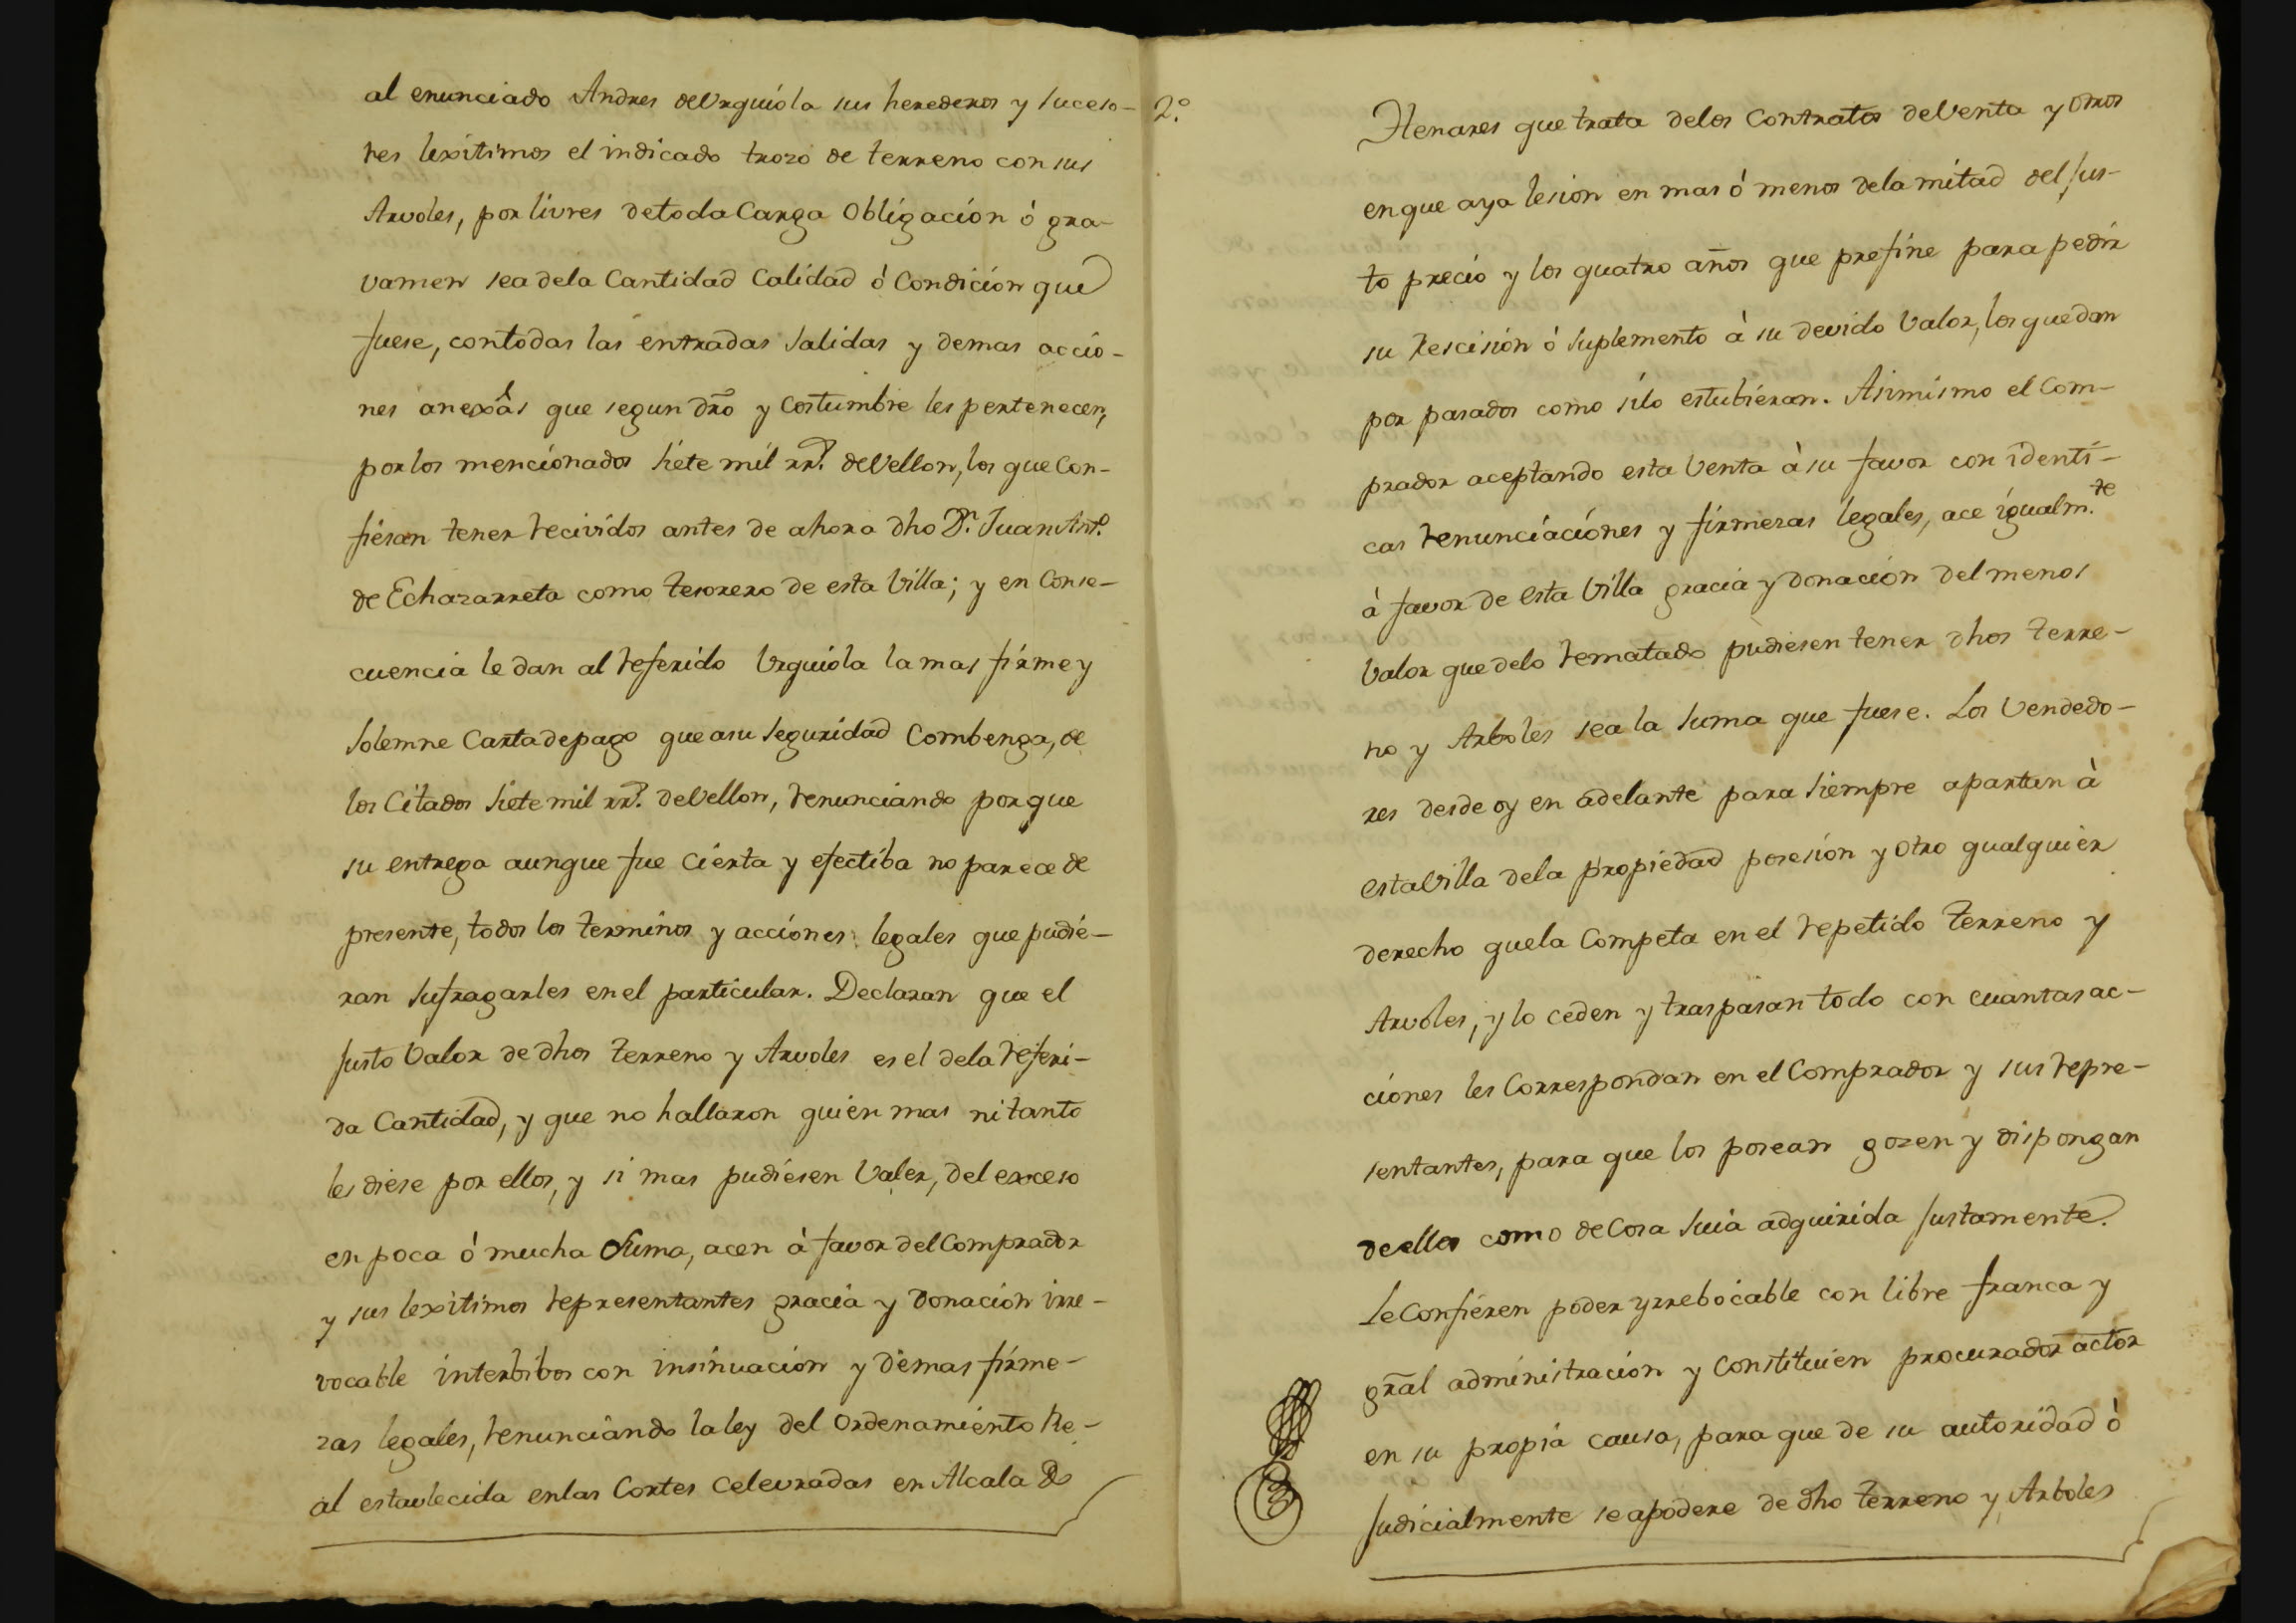 al enunciado Andres de Urquiola sus herederos y suceso-
res lexitimos el indicado trozo de terreno con sus
Arvoles, por livres de toda Carga Obligación ó gra-
vamen sea dela Cantidad Calidad ó Condición que
fuese, con todas las entradas salidas y demas accio-
nes anexâs que segun dr̃o y Costumbre les pertenecen,
por los mencionados siete mil rr.ˢ de Vellon, los que Con-
fiesan tener recividos antes de ahora dho D.ⁿ Juan Ant.º
de Echazarreta como tesorero de esta Villa; y en Conse-
cuencia le dan al referido Urquiola la mas firme y
Solemne Carta de pago que a su Seguridad Combenga, de
los Citados Siete mil rr.ˢ de Vellon, renunciando porque
su entrega aunque fue Cierta y efectiba no parece de
presente, todos los terminos y acciones legales que pudie-
ran Sufragarles en el particular. Declaran que el
Justo Valor de dhos terreno y Arvoles es el dela referi-
da Cantidad, y que no hallaron quien mas ni tanto
les diese por ellos, y si mas pudiesen Valer, del exceso
en poca ó mucha Suma, acen à favor del Comprador
y sus lexitimos representantes gracia y Donación irre-
vocable interbibos con insinuación y demas firme-
zas legales, renunciando la ley del Ordenamiento Re-
al estavlecida en las Cortes Celevradas en Alcala de
2.º
Henares que trata delos Contratos de Venta y otros
en que aya lesion en mas ó menos dela mitad del Jus-
to precio y los quatro años que prefine para pedir
su Rescisión ó Suplemento à su devido Valor, los que dan
por pasados como si lo estubieran. Asimismo el Com-
prador aceptando esta Venta à su favor con identi-
cas renunciaciónes y firmezas legales, ace igualm.ᵗᵉ
à favor de esta Villa gracia y donación del menos
Valor que delo rematado pudiesen tener dhos terre-
no y Arboles sea la Suma que fuese. Los Vendedo-
res desde oy en adelante para Siempre apartan à
esta Villa dela propiedad posesión y otro qualquier
derecho que la Competa en el repetido terreno y
Arvoles, y lo ceden y traspasan todo con cuantas ac-
ciones les Correspondan en el Comprador y sus repre-
sentantes, para que los posean gozen y dispongan
de ellos como de Cosa Suia adquirida Justamente.
Le Confieren poder yrrebocable con libre franca y
gr̃al administración y Constituien procurador actor
en su propia causa, para que de su autoridad ò
Judicialmente se apodere de dho terreno y Arboles